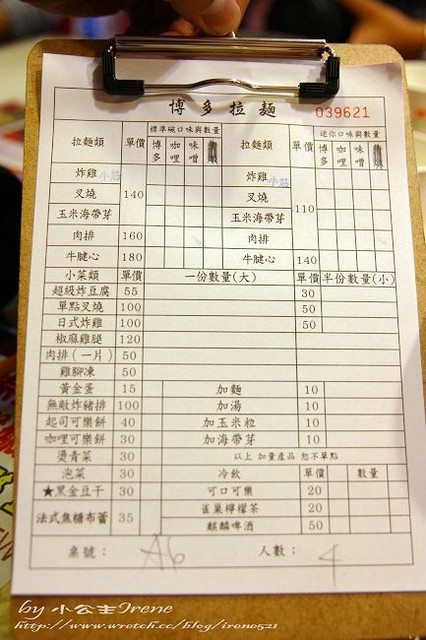 博多拉麵 039621
拉麵類 單價 標準碗口味與數量 拉麵類 單價 迷你口味與數量
博多 咖哩 味噌 博多 咖哩 味噌
炸雞 牛筋 炸雞 牛筋
叉燒 140 叉燒 110
玉米海帶芽 玉米海帶芽
肉排 160 肉排
牛腱心 180 牛腱心 140
小菜類 單價 一份數量(大) 單價 半份數量(小)
超級炸豆腐 55 30
單點叉燒 100 50
日式炸雞 100 50
椒麻雞腿 120
肉排(一片) 50
雞腳凍 50
黃金蛋 15 加麵 10
無敵炸豬排 100 加湯 10
起司可樂餅 40 加玉米粒 10
咖哩可樂餅 30 加海帶芽 10
燙青菜 30 以上 加量產品 恕不單點
泡菜 30 冷飲 單價 數量
★黑金豆干 30 可口可樂 20
法式焦糖布蕾 35 雀巢檸檬茶 20
麒麟啤酒 50
桌號： A6 人數： 4
by 小公主Irene
http://www.wretch.cc/blog/irene521